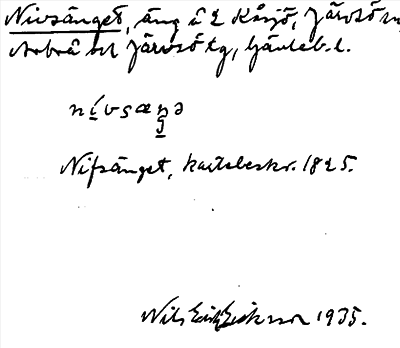 Nivsänget, äng å 2 Kåsjö, Järvsö sn,
Arbrå och Järvsö tg, Gävleb. l.
nívsæŋə
Nifsänget, kartebeskr. 1825.
Nils Erik Eriksson 1935.